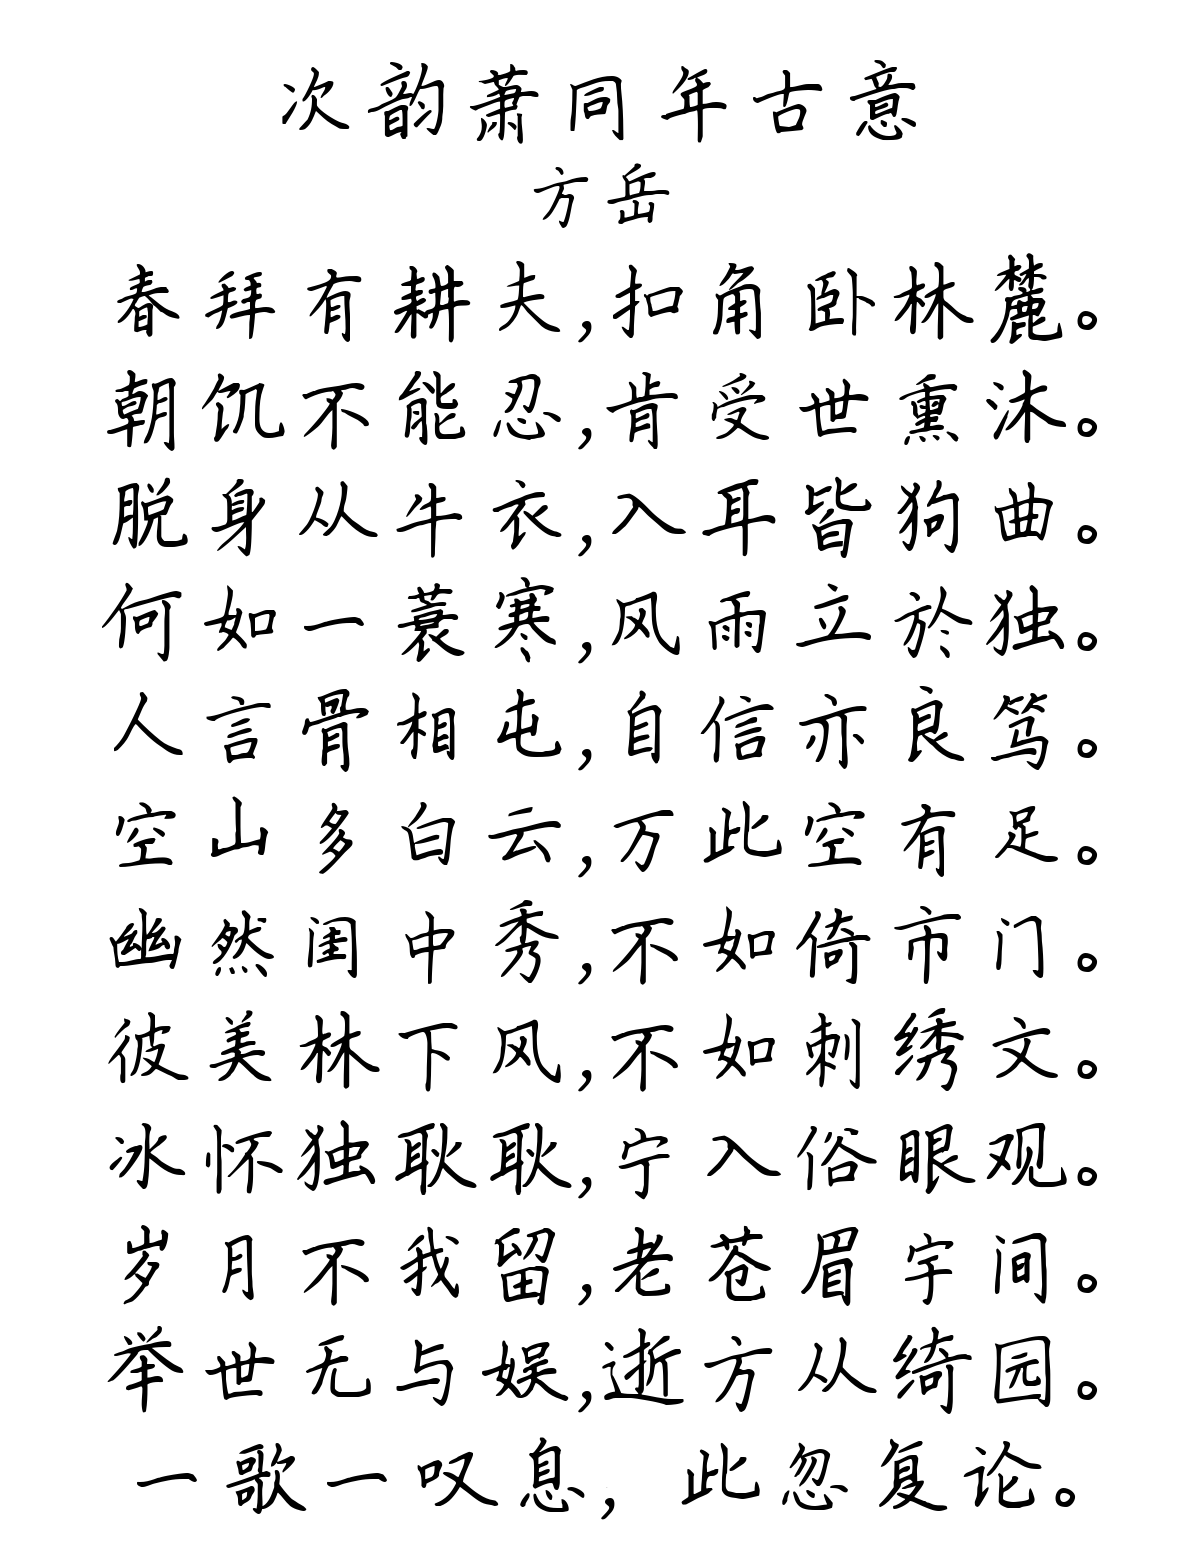 次韵萧同年古意
方岳
春拜有耕夫,扣角卧林麓。
朝饥不能忍,肯受世熏沐。
脱身从牛衣,入耳皆狗曲。
何如一蓑寒,风雨立於独。
人言骨相屯,自信亦良笃。
空山多白云,万此空有足。
幽然闺中秀,不如倚市门。
彼美林下风,不如刺绣文。
冰怀独耿耿,宁入俗眼观。
岁月不我留,老苍眉宇间。
举世无与娱,逝方从绮园。
一歌一叹息,此忽复论。